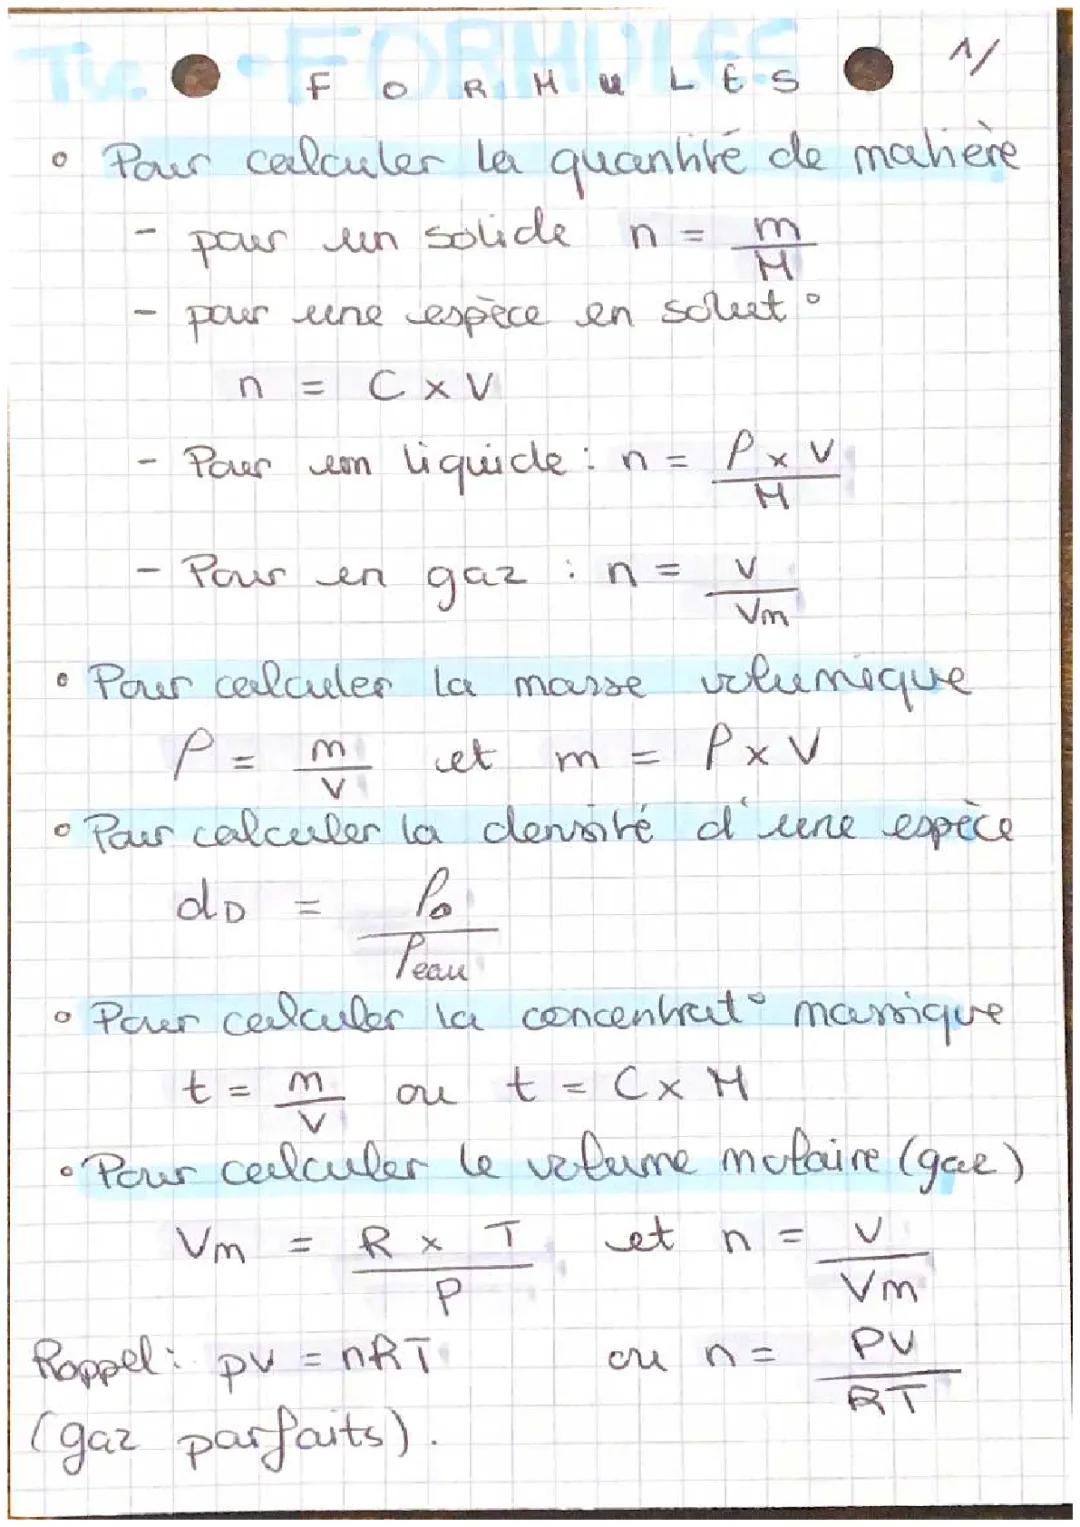 FORMULES 1/
• Pour calculer la quantité de matière
- pour un solide n = m/M
- pour une espèce en solut°
n = C x V
- Pour un liquide : n = ρ x V / M
- Pour un gaz : n = V / Vm
• Pour calculer la masse volumique
ρ = m/V et m = ρ x V
• Pour calculer la densité d'une espèce
dD = ρD / ρeau
• Pour calculer la concentrat° massique
t = m/V ou t = C x M
• Pour calculer le volume molaire (gaz)
Vm = R x T / P et n = V / Vm
Rappel : PV = nRT ou n = PV / RT
(gaz parfaits).